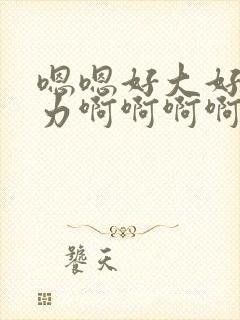 嗯嗯好大好
力啊啊啊啊
饕天